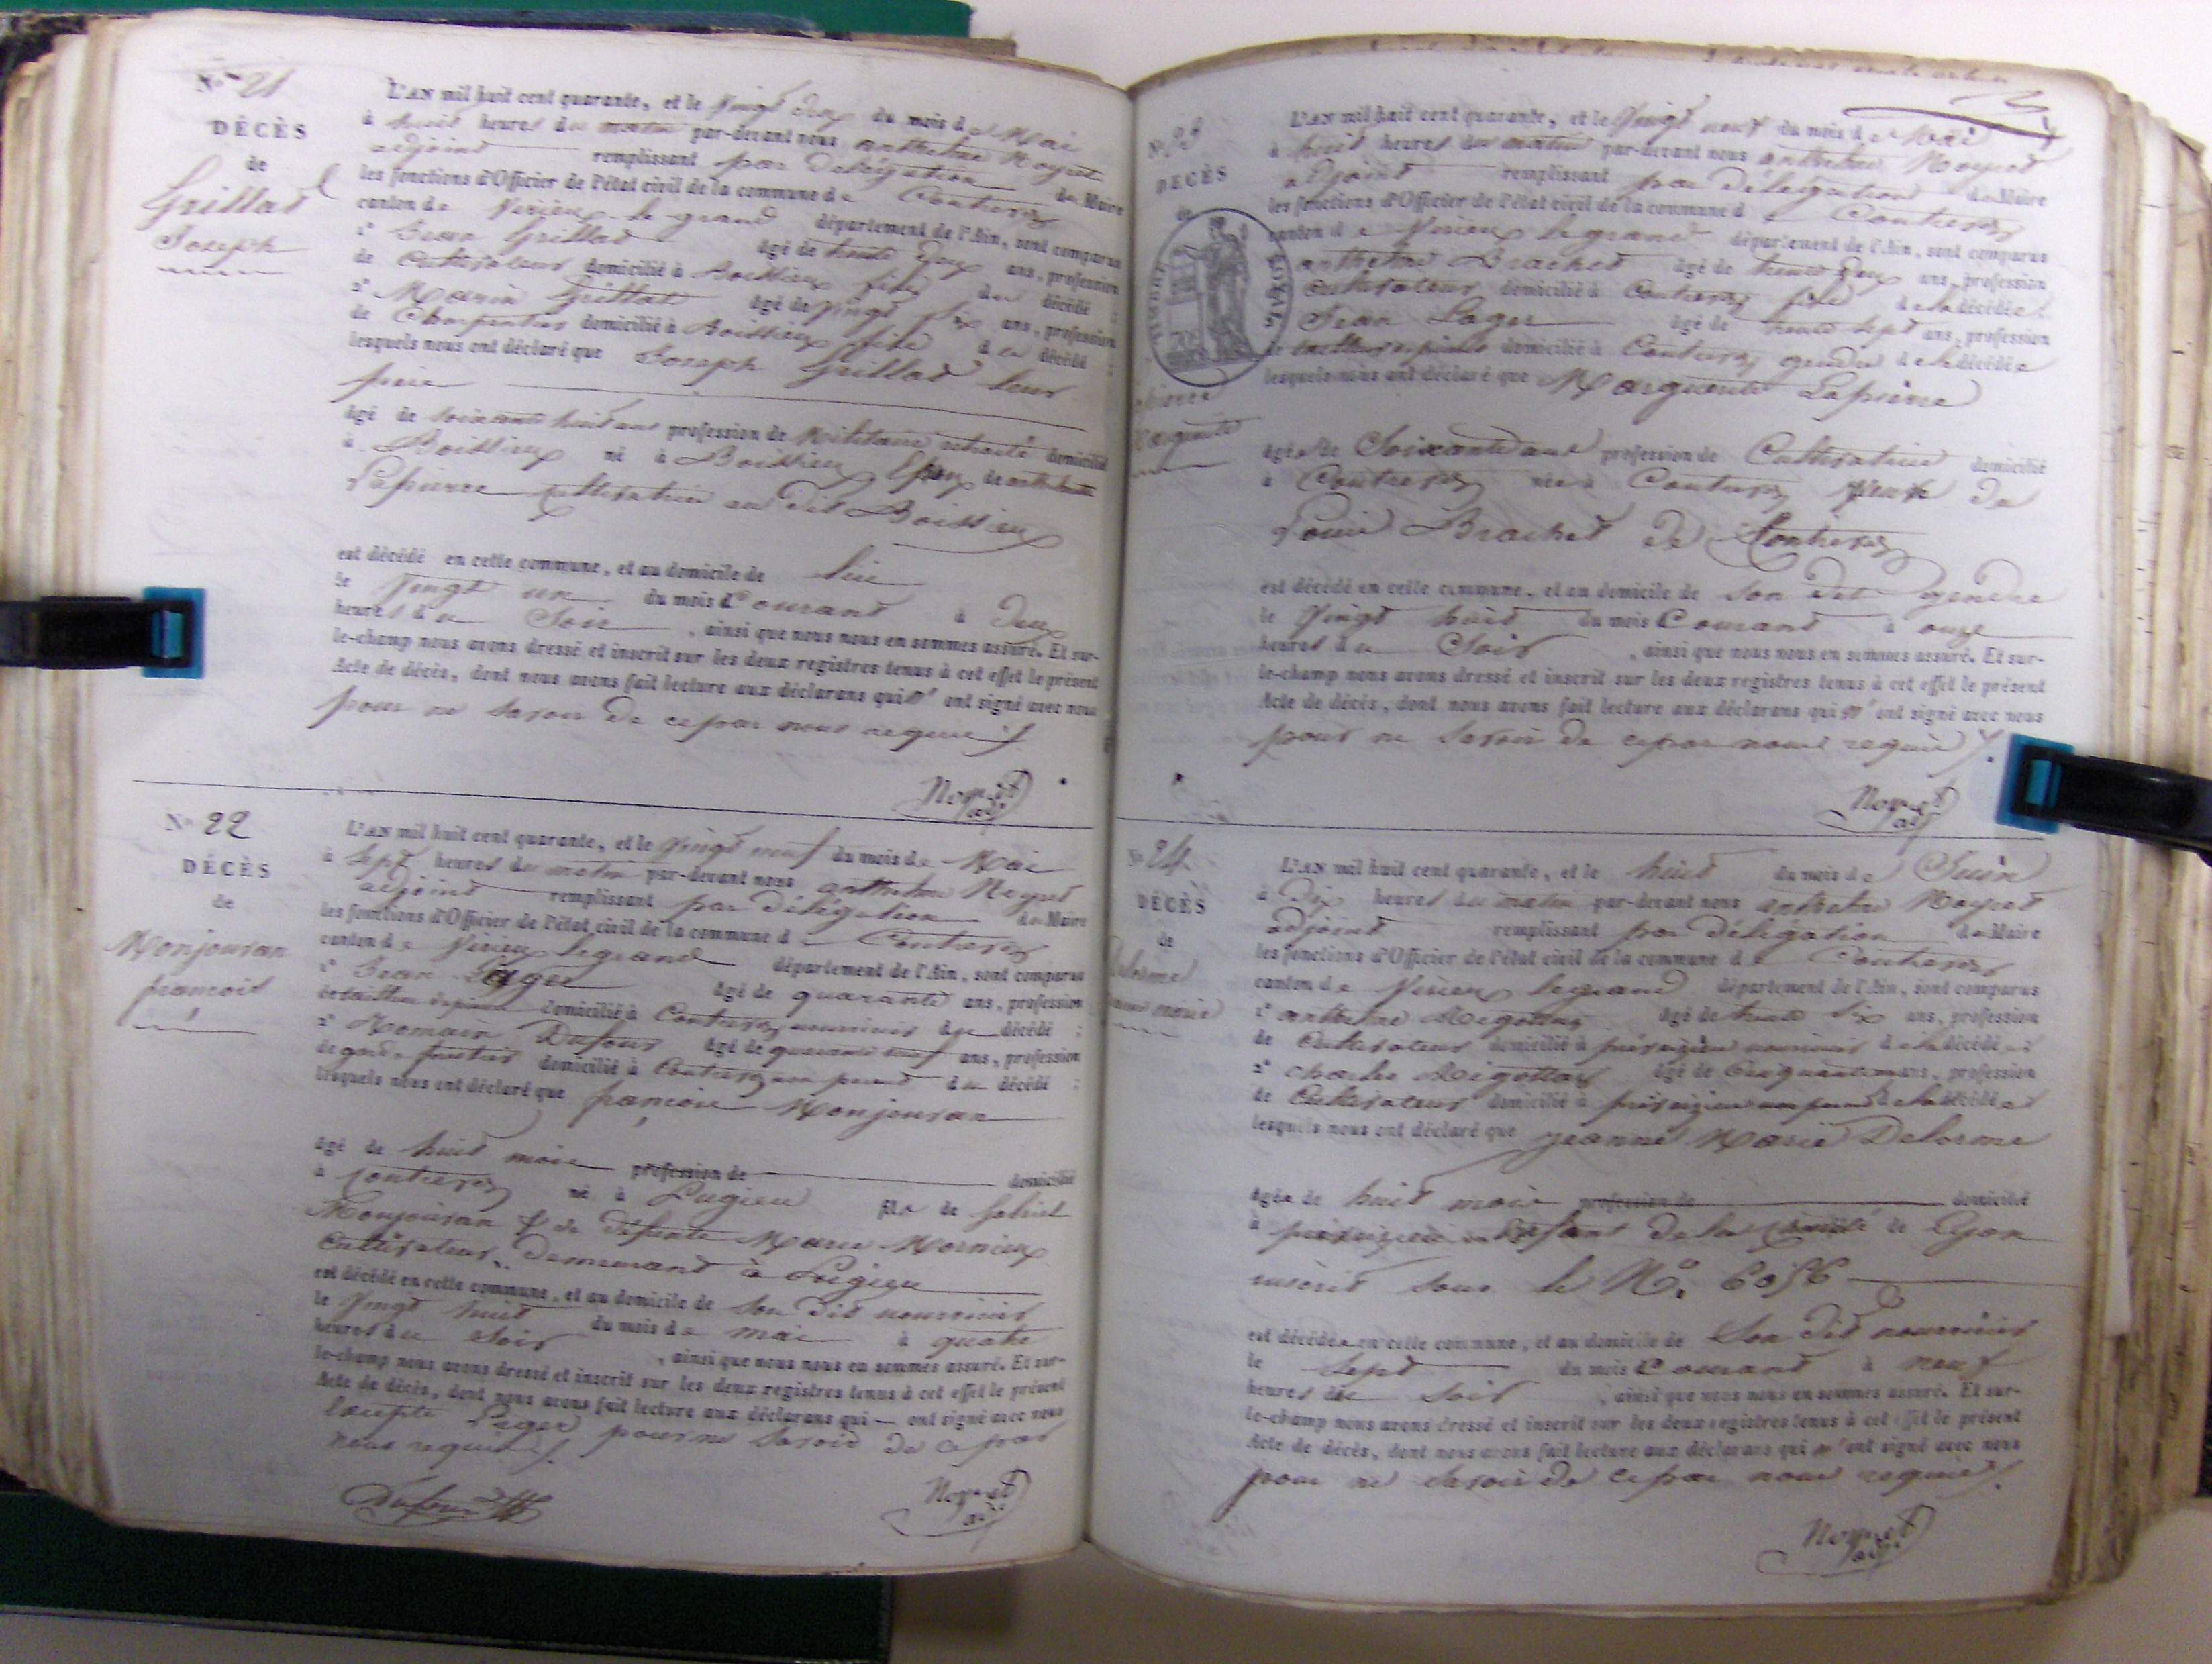 N° 21
DÉCÈS
de
Grillat
Joseph
L'AN mil huit cent quarante, et le Vingt deux du mois de Mai
à huit heures du matin par-devant nous anthelme Noyret
adjoint remplissant par Délégation du Maire
les fonctions d'Officier de l'état civil de la commune de Contrevoz
canton de Virieu le grand département de l'Ain, sont comparus
1° Jean Grillat âgé de trente deux ans, profession
de Cultivateur domicilié à Boissieu fils du décédé ;
2° Marin Grillat âgé de Vingt six ans, profession
de Charpentier domicilié à Boissieu fils du décédé ;
lesquels nous ont déclaré que Joseph Grillat leur
père
âgé de soixante huit ans profession de Militaire retraité domicilié
à Boissieu né à Boissieu Epoux de
Lapierre cultivatrice au dit Boissieu
est décédé en cette commune, et au domicile de lui
le Vingt un du mois Courant à Deux
heures du Soir, ainsi que nous nous en sommes assuré. Et sur-
le-champ nous avons dressé et inscrit sur les deux registres tenus à cet effet le présent
Acte de décès, dont nous avons fait lecture aux déclarans qui n'ont signé avec nous
pour ne savoir de ce par nous requis
Noyret
adj
N° 22
DÉCÈS
de
Monjousan
francois
L'AN mil huit cent quarante, et le Vingt neuf du mois de Mai
à Sept heures du matin par-devant nous anthelme Noyret
adjoint remplissant par délégation du Maire
les fonctions d'Officier de l'état civil de la commune de Contrevoz
canton de Virieu legrand département de l'Ain, sont comparus
1° Jean Lager âgé de quarante ans, profession
de tailleur de pierre domicilié à Contrevoz nourricier du décédé ;
2° Romain Dufour âgé de quarante neuf ans, profession
de garde forestier domicilié à Contrevoz non parent du décédé ;
lesquels nous ont déclaré que francois Monjousan
âgé de huit mois profession de domicilié
à Contrevoz né à Pugieu fils de Gabriel
Monjousan & de défunte Marie Mornieux
Cultivateur Demeurant à Pugieu
est décédé en cette commune, et au domicile de Son Dit nourricier
le Vingt huit du mois de mai à quatre
heures du Soir, ainsi que nous nous en sommes assuré. Et sur-
le-champ nous avons dressé et inscrit sur les deux registres tenus à cet effet le présent
Acte de décès, dont nous avons fait lecture aux déclarans qui — ont signé avec nous
Excepté Lager pour ne Savoir de ce par
nous requis
Dufour
Noyret
adj
N° 23
DÉCÈS
de
TIMBRE ROYAL
L'AN mil huit cent quarante, et le Vingt neuf du mois de Mai
à huit heures du matin par-devant nous anthelme Noyret
adjoint remplissant par délégation du Maire
les fonctions d'Officier de l'état civil de la commune de Contrevoz
canton de Virieu legrand département de l'Ain, sont comparus
anthelme Brachet âgé de trente deux ans, profession
Cultivateur domicilié à Contrevoz fils de la décédée
Jean Lager âgé de trente sept ans, profession
de tailleur de pierre domicilié à Contrevoz gendre de la décédée
lesquels nous ont déclaré que Marguerite Lapierre
âgée de Soixante ans profession de Cultivatrice domicilié
à Contrevoz née à Contrevoz veuve de
Louis Brachet de Contrevoz
est décédé en cette commune, et au domicile de son dit gendre
le Vingt huit du mois Courant à onze
heures du Soir, ainsi que nous nous en sommes assuré. Et sur-
le-champ nous avons dressé et inscrit sur les deux registres tenus à cet effet le présent
Acte de décès, dont nous avons fait lecture aux déclarans qui n'ont signé avec nous
pour ne Savoir de ce par nous requis
Noyret
adj
N° 24
DÉCÈS
de
Delorme
marie
L'AN mil huit cent quarante, et le huit du mois de Juin
à Dix heures du matin par-devant nous anthelme Noyret
adjoint remplissant par Délégation du Maire
les fonctions d'Officier de l'état civil de la commune de Contrevoz
canton de Virieu legrand département de l'Ain, sont comparus
1° anthelme Migottaz âgé de trente Six ans, profession
de Cultivateur domicilié à preveyzieu nourricier de la décédée ;
2° Charles Migottaz âgé de Cinquante ans, profession
de Cultivateur domicilié à preveyzieu non parent de la décédée
lesquels nous ont déclaré que Jeanne Marie Delorme
âgée de huit mois profession de domicilié
à preveyzieu Enfant de la Charité de Lyon
inscrit sous le N°. 6056
est décédée en cette commune, et au domicile de Son Dit nourricier
le Sept du mois Courant à neuf
heures du Soir, ainsi que nous nous en sommes assuré. Et sur-
le-champ nous avons dressé et inscrit sur les deux registres tenus à cet effet le présent
Acte de décès, dont nous avons fait lecture aux déclarans qui n'ont signé avec nous
pour ne Savoir de ce par nous requis
Noyret
adj